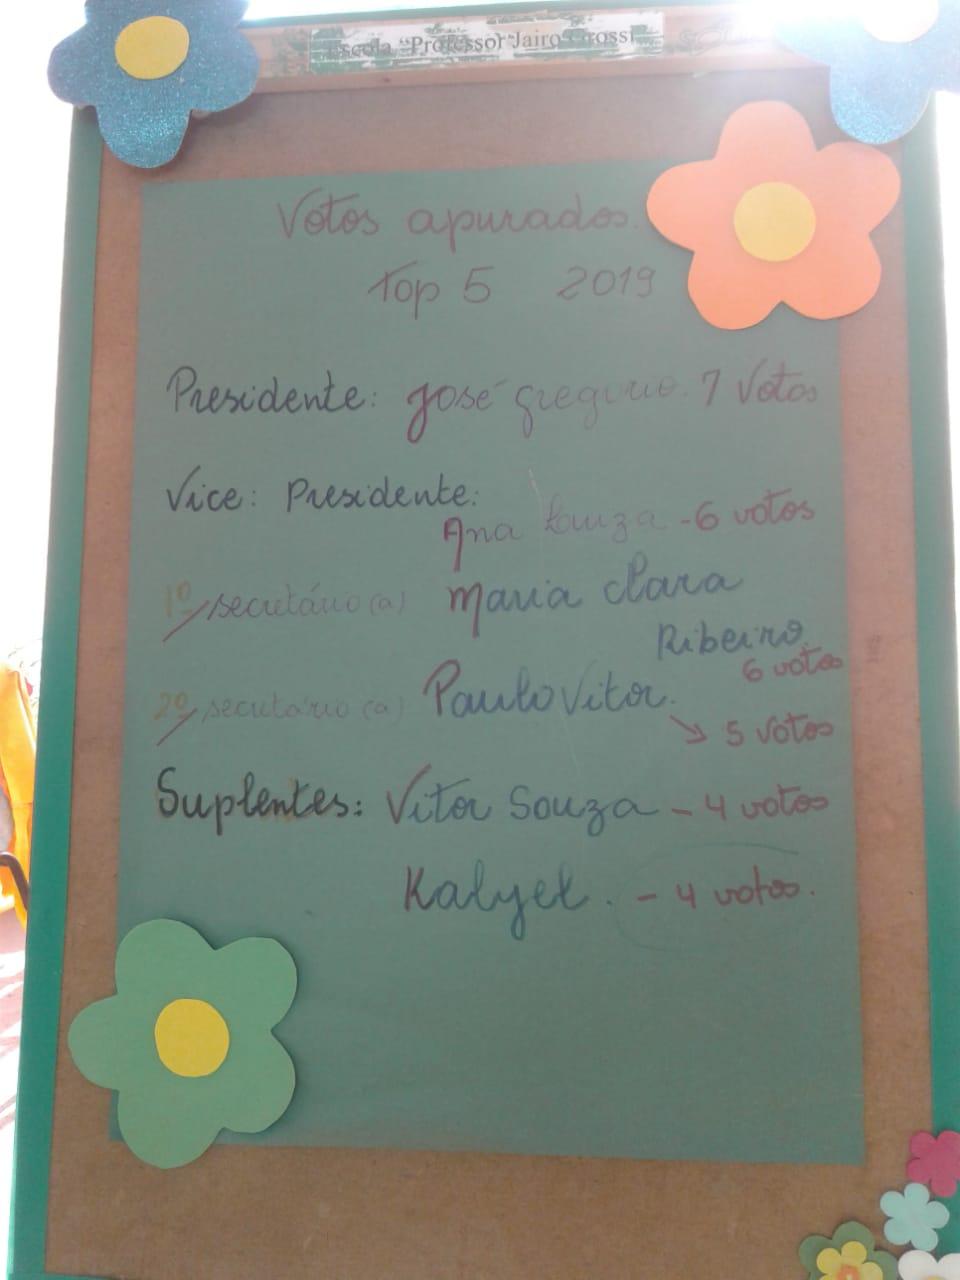 Escola "Professor Jairo Grossi"
Votos apurados.
Top 5 2019
Presidente: José gregorio. 7 Votos
Vice: Presidente:
Ana Luuza - 6 votos
1º secretário (a) Maria Clara
Ribeiro.
6 votos
2º secretário (a) Paulo Vitor.
→ 5 votos
Suplentes: Vitor Souza - 4 votos
Kalyel. - 4 votos.